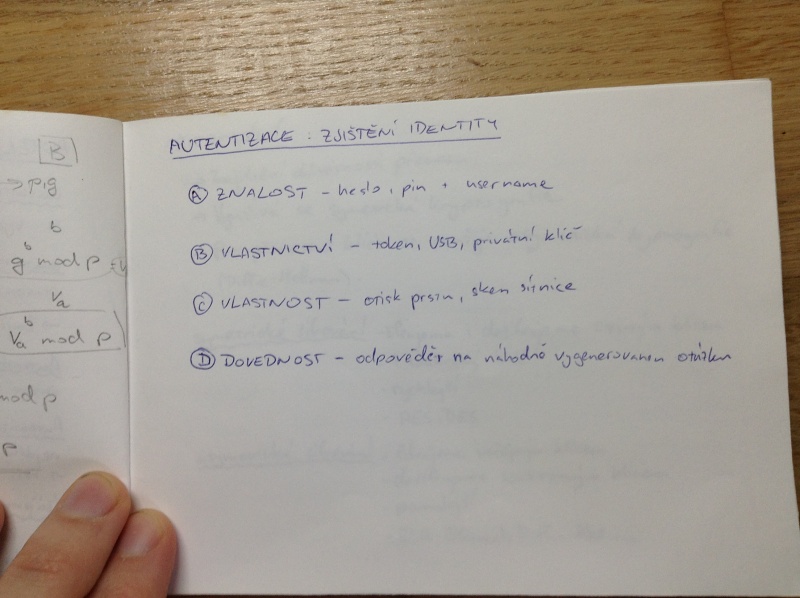 B
→ p,g
b
g^b mod p
Va
Va^b mod p
mod p
p
AUTENTIZACE : ZJIŠTĚNÍ IDENTITY
A ZNALOST – heslo, pin + username
B VLASTNICTVÍ – token, USB, privátní klíč
C VLASTNOST – otisk prstu, sken sítnice
D DOVEDNOST – odpověděť na náhodně vygenerovanou otázku